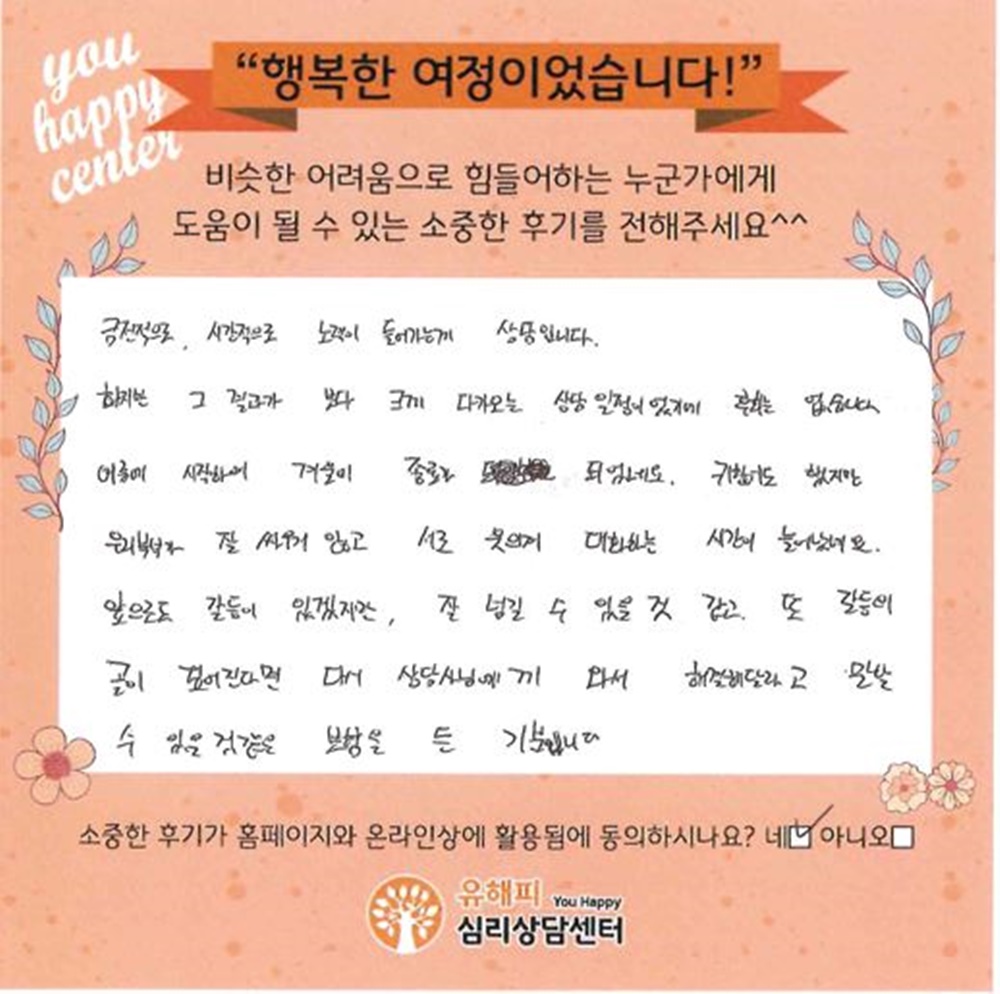 you
happy
center
“행복한 여정이었습니다!”
비슷한 어려움으로 힘들어하는 누군가에게
도움이 될 수 있는 소중한 후기를 전해주세요^^
금전적으로, 시간적으로 노력이 들어가는게 상담입니다.
하지만 그 결과가 보다 크게 다가오는 상담 일정이었기에 후회는 없습니다
여름에 시작하여 겨울이 종료가 되었네요. 귀찮기도 했지만
우리부부가 잘 싸우지 않고 서로 웃으며 대화하는 시간이 늘어났네요.
앞으로도 갈등이 있겠지만, 잘 넘길 수 있을 것 같고. 또 갈등의
골이 깊어진다면 다시 상담사님에게 와서 해결해달라고 말할
수 있을것같은 보험을 든 기분입니다
소중한 후기가 홈페이지와 온라인상에 활용됨에 동의하시나요? 네☑ 아니오☐
유해피 You Happy
심리상담센터